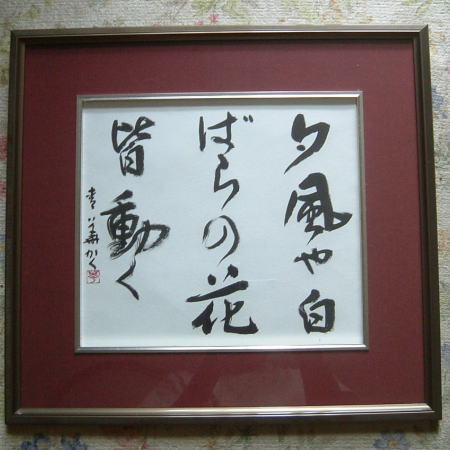 夕風や白
ばらの花
皆動く
かく